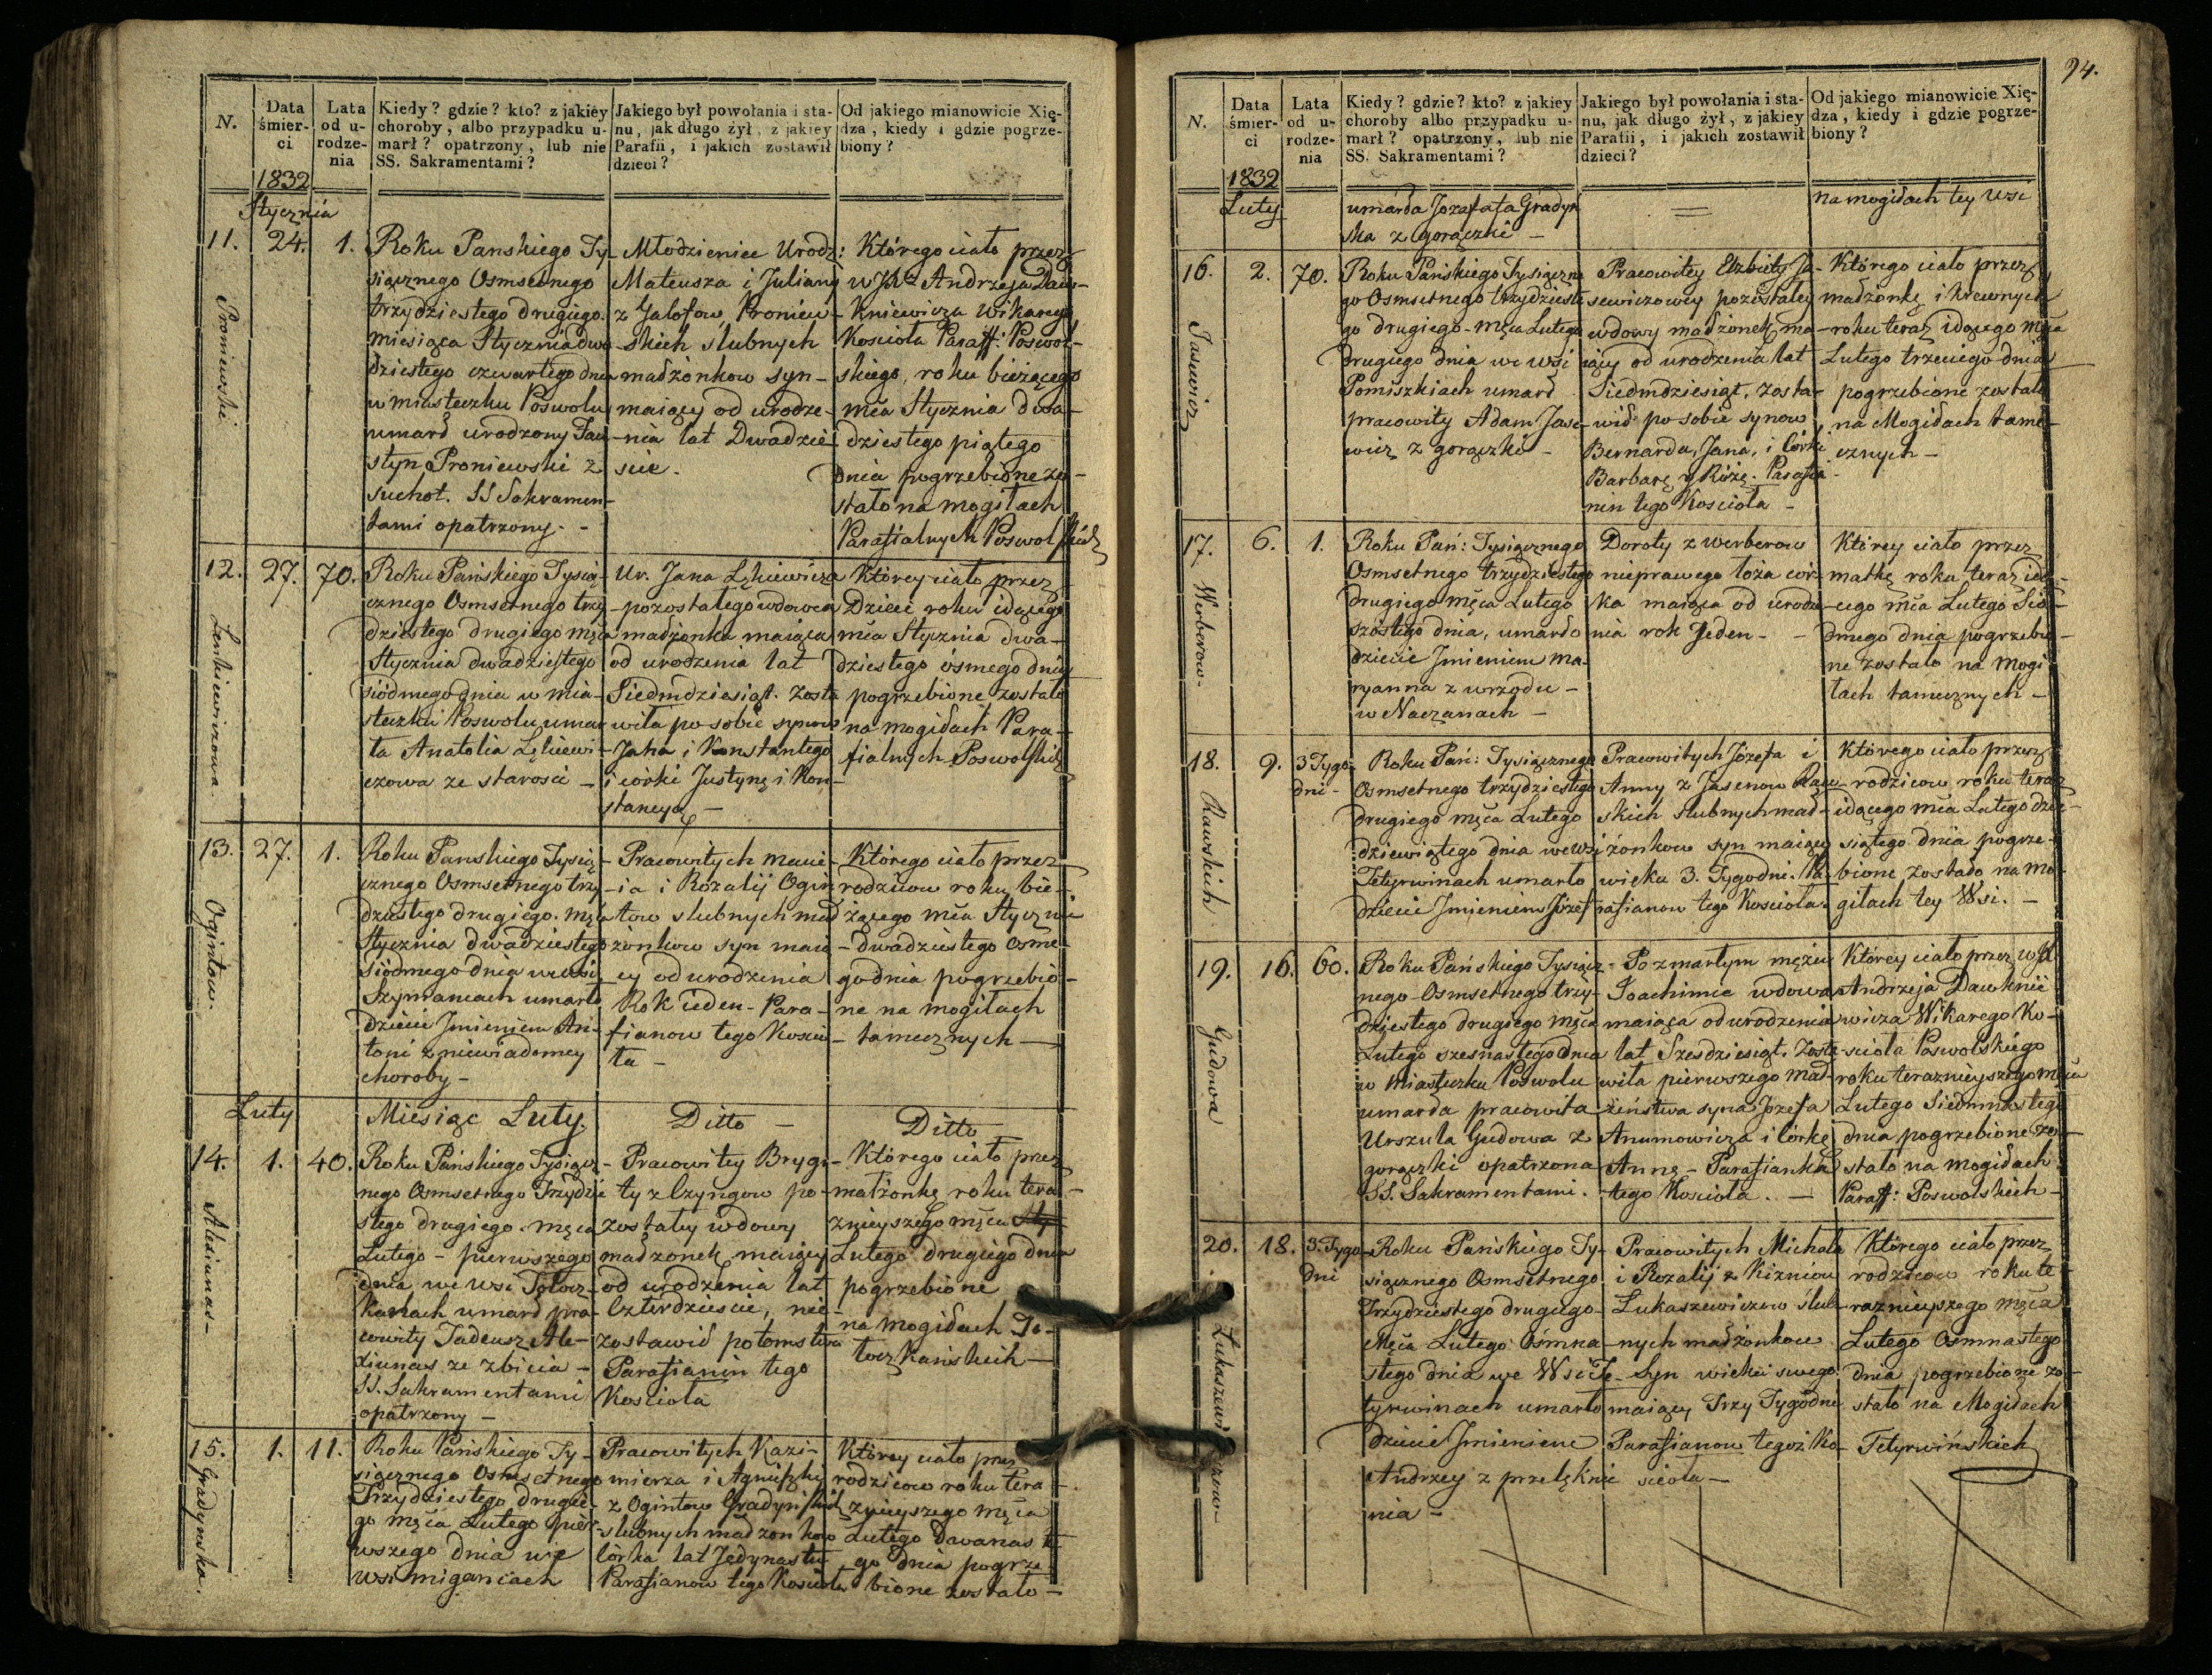 N.
Data śmier-
ci
1832
Lata
od u-
rodze-
nia
Kiedy? gdzie? kto? z jakiey
choroby, albo przypadku u-
marł? opatrzony, lub nie
SS. Sakramentami?
Jakiego był powołania i sta-
nu, jak długo żył, z jakiey
Parafii, i jakich zostawił
dzieci?
Od jakiego mianowicie Xię-
dza, kiedy i gdzie pogrze-
biony?
Stycznia
11.
Proniewski
24.
1.
Roku Panskiego Ty-
siącznego Osmsetnego
trzydziestego drugiego
miesiąca Stycznia dwu
dziestego czwartego dnia
w miasteczku Poswolu
umarł urodzony Fau
styn Proniewski z
suchot. SS Sakramen-
tami opatrzony. -
Młodzieniec Urodz:
Mateusza i Juliany
z Proniew-
skich slubnych
madżonkow syn -
maiący od urodze-
nia lat Dwadzie
scie.
Którego ciało przez
Andrzeja Daw-
kniewicza wikarego
Kosciola Paraff: Poswol-
skiego, roku bieżącego
mca Stycznia dwa-
dziestego piątego
dnia pogrzebione zo-
stało na mogiłach
Parafialnych Poswolskich
12.
Lenkiewiczowa
27.
70.
Roku Pańskiego Tysią-
cznego Osmsetnego trzy-
dziestego drugiego męca
Stycznia dwadziestego
siódmego dnia w mia-
steczku Poswolu umar
ła Anatolia Lękiewi-
czowa ze starosci -
Ur. Jana Lękiewicza
pozostałego wdowca
madżonka maiąca
od urodzenia lat
Siedmdziesiąt. zosta
wiła po sobie synow
Jana i Konstantego
i córki Justynę i Kon-
stancyą -
Którey ciało przez
Dzieci roku idącego
mca Stycznia dwa-
dziestego ósmego dnia
pogrzebione zostało
na mogiłach Para-
fialnych Poswolskich
13.
Ogintow.
27.
1.
Roku Panskiego Tysią-
cznego Osmsetnego trzy-
dziestego drugiego. męca
Stycznia dwadziestego
Siódmego dnia we wsi
Szymaniach umarło
dziecie Jmieniem An-
toni z niewiadomey
choroby -
Pracowitych Macie-
ia i Rozalij Ogin
tow slubnych mad
żonkow syn maią
cy od urodzenia
Rok ieden - Para-
fianow tego Koscio-
ła -
Którego ciało przez
rodzicow roku bie-
żącego mca Stycznia
dwadziestego osme
go dnia pogrzebio-
ne na mogiłach
tamecznych -
Luty
Miesiąc Luty.
Ditto -
Ditto -
14.
Alesiunas -
1.
40.
Roku Pańskiego Tysiącz-
nego Osmsetnego Trzydzie
stego drugiego. męca
Lutego - pierwszego
dnia we wsi Tołocz-
kaniach umarł pra-
cowity Tadeusz Ale-
xiunas ze zbicia -
SS. Sakramentami
opatrzony -
Pracowitey Brygi-
ty z Czyngow po-
zostałey wdowy
madzonek, maiący
od urodzenia lat
Czterdziescie, nie-
zostawił potomstwa
Parafianin tego
Kosciola
Którego ciało przez
małżonkę roku tera-
znieyszego męca
Lutego drugiego dnia
pogrzebione
na mogiłach To-
łoczkańskich -
15.
Gradynska.
1.
11.
Roku Pańskiego Ty-
siącznego Osmsetnego
Trzydziestego drugie-
go męca Lutego pier-
wszego dnia we
wsi miganciach
Pracowitych Kazi-
mierza i Agniszki
z Ogintow Gradyńskich
slubnych madzonkow
Córka lat Jedynastu
Parafianow tego Kosciola
Którey ciało przez
rodzicow roku tera-
znieyszego męca
Lutego Dwunaste
go dnia pogrze-
bione zostało -
94.
N.
Data
śmier-
ci
1832
Lata
od u-
rodze-
nia
Kiedy? gdzie? kto? z jakiey
choroby albo przypadku u-
marł? opatrzony, lub nie
SS. Sakramentami?
Jakiego był powołania i sta-
nu, jak długo żył, z jakiey
Parafii, i jakich zostawił
dzieci?
Od jakiego mianowicie Xię-
dza, kiedy i gdzie pogrze-
biony?
Luty
umarła Jozafata Gradyń
ska z gorączki -
na mogiłach tey wsi
16.
Jasewicz
2.
70.
Roku Pańskiego Tysiączne
go Osmsetnego trzydzieste
go drugiego - męca Lutego
drugiego dnia we wsi
Pomiszkiach umarł
pracowity Adam Jase-
wicz z gorączki -
Pracowitey Elzbiety Ja-
sewiczowey pozostałey
wdowy madżonek, ma-
iący od urodzenia lat
Siedmdziesiąt. zosta-
wił po sobie synow
Bernarda, Jana, i Córki
Barbarę y Różę. Parafia-
nin tego Kosciola -
Którego ciało przez
madżonkę i krewnych
roku teraz idącego mca
Lutego trzeciego dnia
pogrzebione zostało
na Mogiłach tame-
cznych -
17.
Werberow -
6.
1.
Roku Pań: Tysiącznego
Osmsetnego trzydziestego
drugiego męca Lutego
szóstego dnia, umarło
dziecie Jmieniem Ma-
ryanna z wrzodu -
w Naczanach -
Doroty z Werberow
nieprawego łoża cór
ka maiąca od urodze-
nia rok Jeden - -
Którey ciało przez
matkę roku teraz idą-
cego mca Lutego Sió-
dmego dnia pogrzebio-
ne zostało na mogi
łach tamecznych -
18.
Rawskich
9.
3 Tygo-
dni -
Roku Pań: Tysiącznego
Osmsetnego trzydziestego
drugiego męca Lutego
dziewiątego dnia we wsi
Tetyrwinach umarło
dziecie Jmieniem Józef
Pracowitych Józefa i
Anny z Jasenow Raw-
skich slubnych mad-
żonkow syn maiący
wieku 3. Tygodni. Pa-
rafianow tego Kosciola
Którego ciało przez
rodzicow roku teraz
idącego mca Lutego dzie-
siątego dnia pogrze-
bione zostało na mo
giłach tey Wsi. -
19.
Gudowa
16.
60.
Roku Pańskiego Tysiącz-
nego Osmsetnego trzy-
dziestego drugiego męca
Lutego szesnastego dnia
w Miasteczku Poswolu
umarła pracowita
Urszula Gudowa z
gorączki opatrzona
SS. Sakramentami.
Po zmarłym mężu
Joachimie wdowa
maiąca od urodzenia
lat Szesdziesiąt. Zosta-
wiła pierwszego mad-
żeństwa syna Jozefa
Anumowicza i Córkę
Annę - Parafianka
tego Kosciola. -
Którey ciało przez
Andrzeja Dawknie
wicza Wikarego Ko-
sciola Poswolskiego
roku teraznieyszego mca
Lutego Siedmnastego
dnia pogrzebione zo-
stało na mogiłach
Paraff: Poswolskich -
20.
Lukaszewiczow -
18.
3. Tygo
dni
Roku Pańskiego Ty-
siącznego Osmsetnego
Trzydziestego drugiego
Męca Lutego Ośmna-
stego dnia we Wsi Te-
tyrwinach umarło
dziecie Jmieniem
Andrzey z przelęknie
nia -
Pracowitych Michała
i Rozalij z Kizniow
Lukaszewiczow ślub-
nych madżonkow
Syn wieku swego
maiący Trzy Tygodnie
Parafianow tegoż Ko-
sciola -
Którego ciało przez
rodzicow roku te-
raznieyszego męca
Lutego Osmnastego
dnia pogrzebione zo-
stało na Mogiłach
Tetyrwińskich